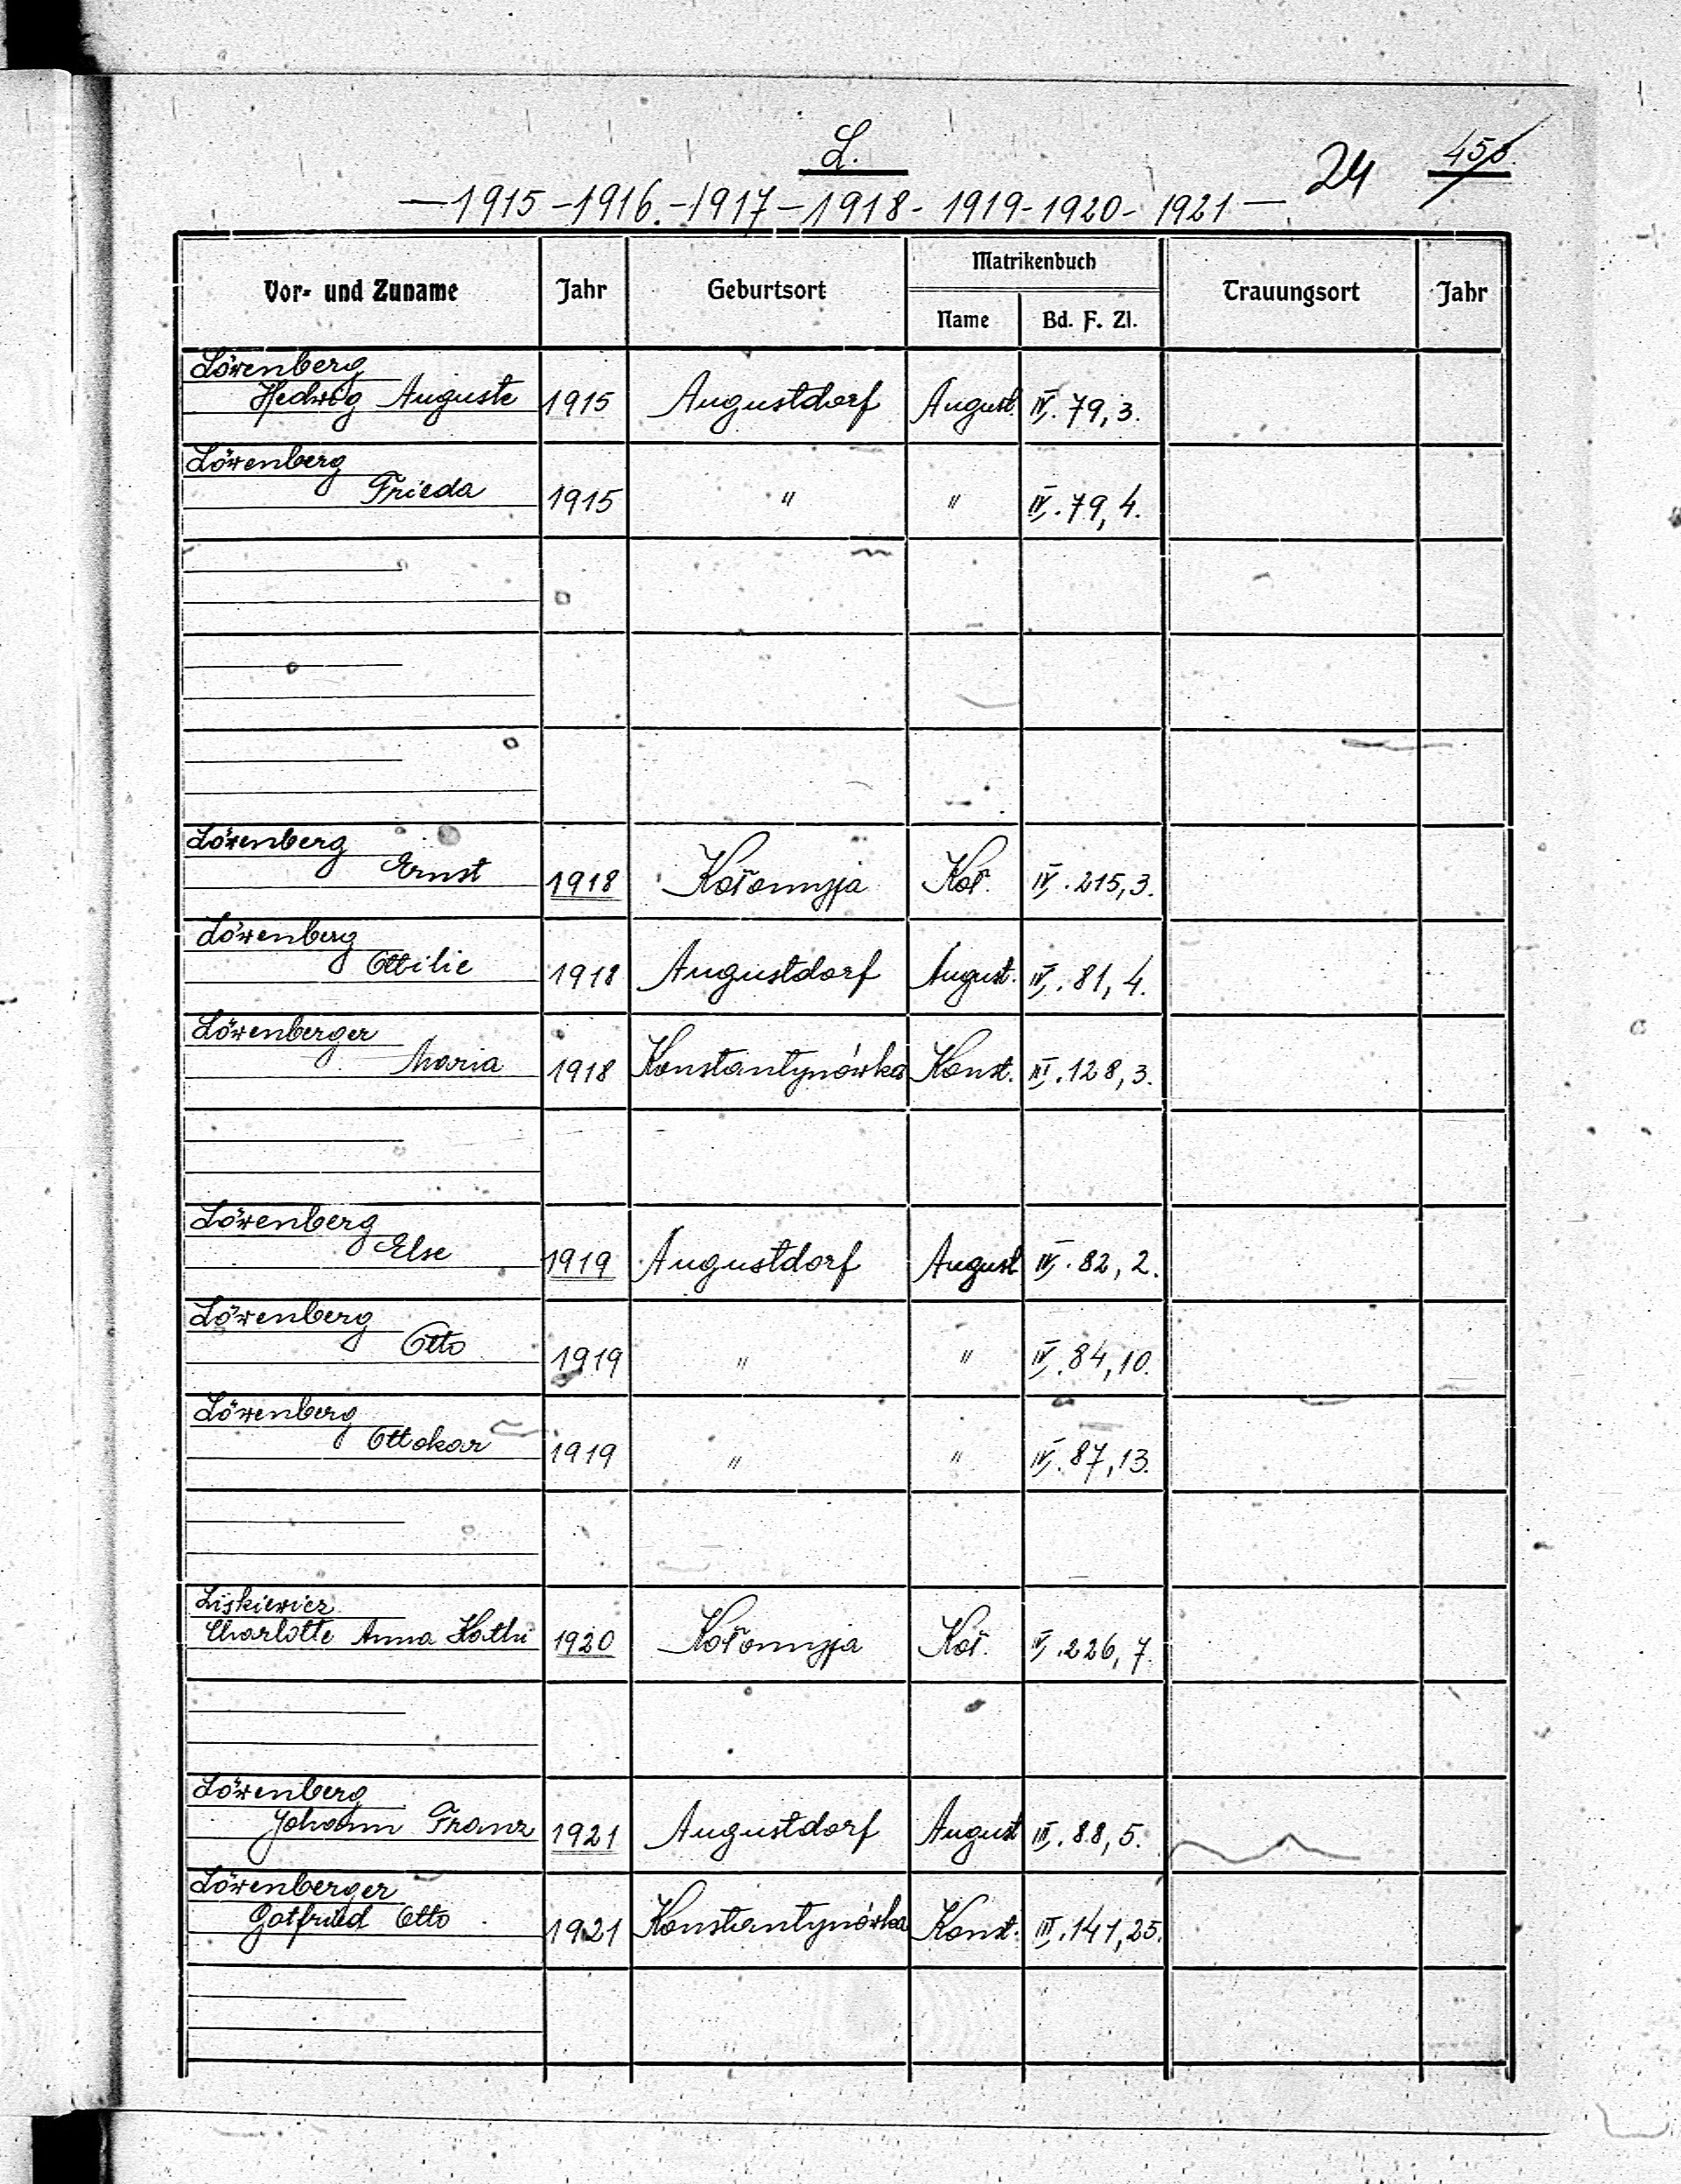 L.
24 458.
— 1915 - 1916. - 1917 - 1918 - 1919 - 1920 - 1921 —
Vor- und Zuname Jahr Geburtsort Matrikenbuch Trauungsort Jahr
Name Bd. F. Zl.
Löwenberg
Hedwig Auguste 1915 Augustdorf August. IV. 79, 3.
Löwenberg
Frieda 1915 " " IV. 79, 4.
Löwenberg
Ernst 1918 Kołomyja Koł. IV. 215, 3.
Löwenberg
Ottilie 1918 Augustdorf August. IV. 81, 4.
Löwenberger
Maria 1918 Konstantynówka Konst. III. 128, 3.
Löwenberg
Else 1919 Augustdorf August IV. 82, 2.
Löwenberg
Otto 1919 " " IV. 84, 10.
Löwenberg
Ottokar 1919 " " IV. 87, 13.
Liskiewicz
Charlotte Anna Kathi 1920 Kołomyja Koł. IV. 226, 7.
Löwenberg
Johann Franz 1921 Augustdorf August III. 88, 5.
Löwenberger
Gotfried Otto 1921 Konstantynówka Konst. III. 141, 25.